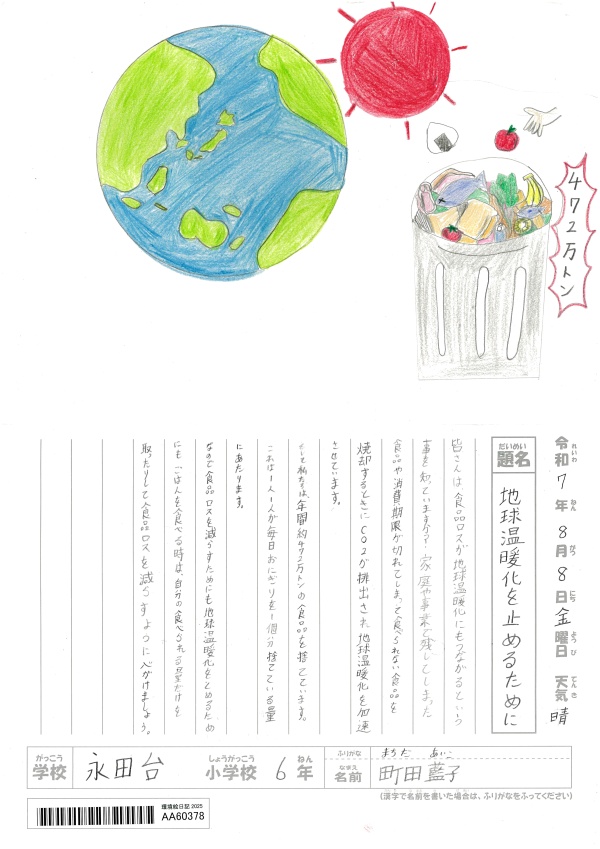 472万トン
令和7年8月8日金曜日 天気 晴
れいわ ねん がつ にち ようび てんき
だいめい
題名
地球温暖化を止めるために
皆さんは食品ロスが地球温暖化にもつながるという
事を知っていますか?家庭や事業で残してしまった
食品や消費期限が切れてしまって食べられない食品を
焼却するときにCO2が排出され地球温暖化を加速
させています。
そして私たちは、年間約472万トンの食品を捨てています。
これは1人1人が毎日おにぎりを1個分捨てている量
にあたります。
なので食品ロスを減らすためにも地球温暖化をとめるため
にも、ごはんを食べる時は、自分の食べられる量だけを
取ったりして食品ロスを減らすように心がけましょう。
がっこう
学校
永田台
しょうがっこう
小学校
6
ねん
年
ふりがな
まちだ あいこ
なまえ
名前
町田藍子
(漢字で名前を書いた場合は、ふりがなをふってください)
環境絵日記2025
AA60378